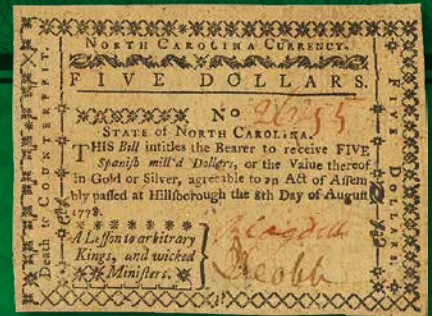 NORTH CAROLINA CURRENCY.
FIVE DOLLARS.
No
STATE of NORTH CAROLINA.
THIS Bill intitles the Bearer to receive FIVE
Spanish mill'd Dollars, or the Value thereof
in Gold or Silver, agreeable to an Act of Assem
bly passed at Hillsborough the 8th Day of August
1778.
A Lesson to arbitrary
Kings, and wicked
Ministers.
Death to COUNTERFEIT.
FIVE DOLLARS.